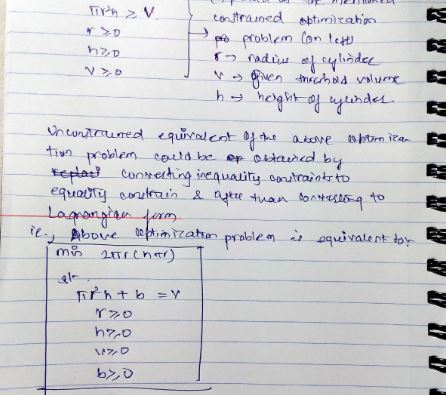 πr²h ≥ V.
r ≥ 0
h ≥ 0
V ≥ 0
constrained optimization
→ problem (on left)
r → radius of cylinder
v → given threshold volume
h → height of cylinder
Unconstrained equivalent of the above optimiza
tion problem could be obtained by
converting inequality constraints to
equality constrain & after than converting to
Lagrangian form
ie., Above optimization problem is equivalent to:
min 2πr(h+r)
πr²h + b = V
r ≥ 0
h ≥ 0
v ≥ 0
b ≥ 0